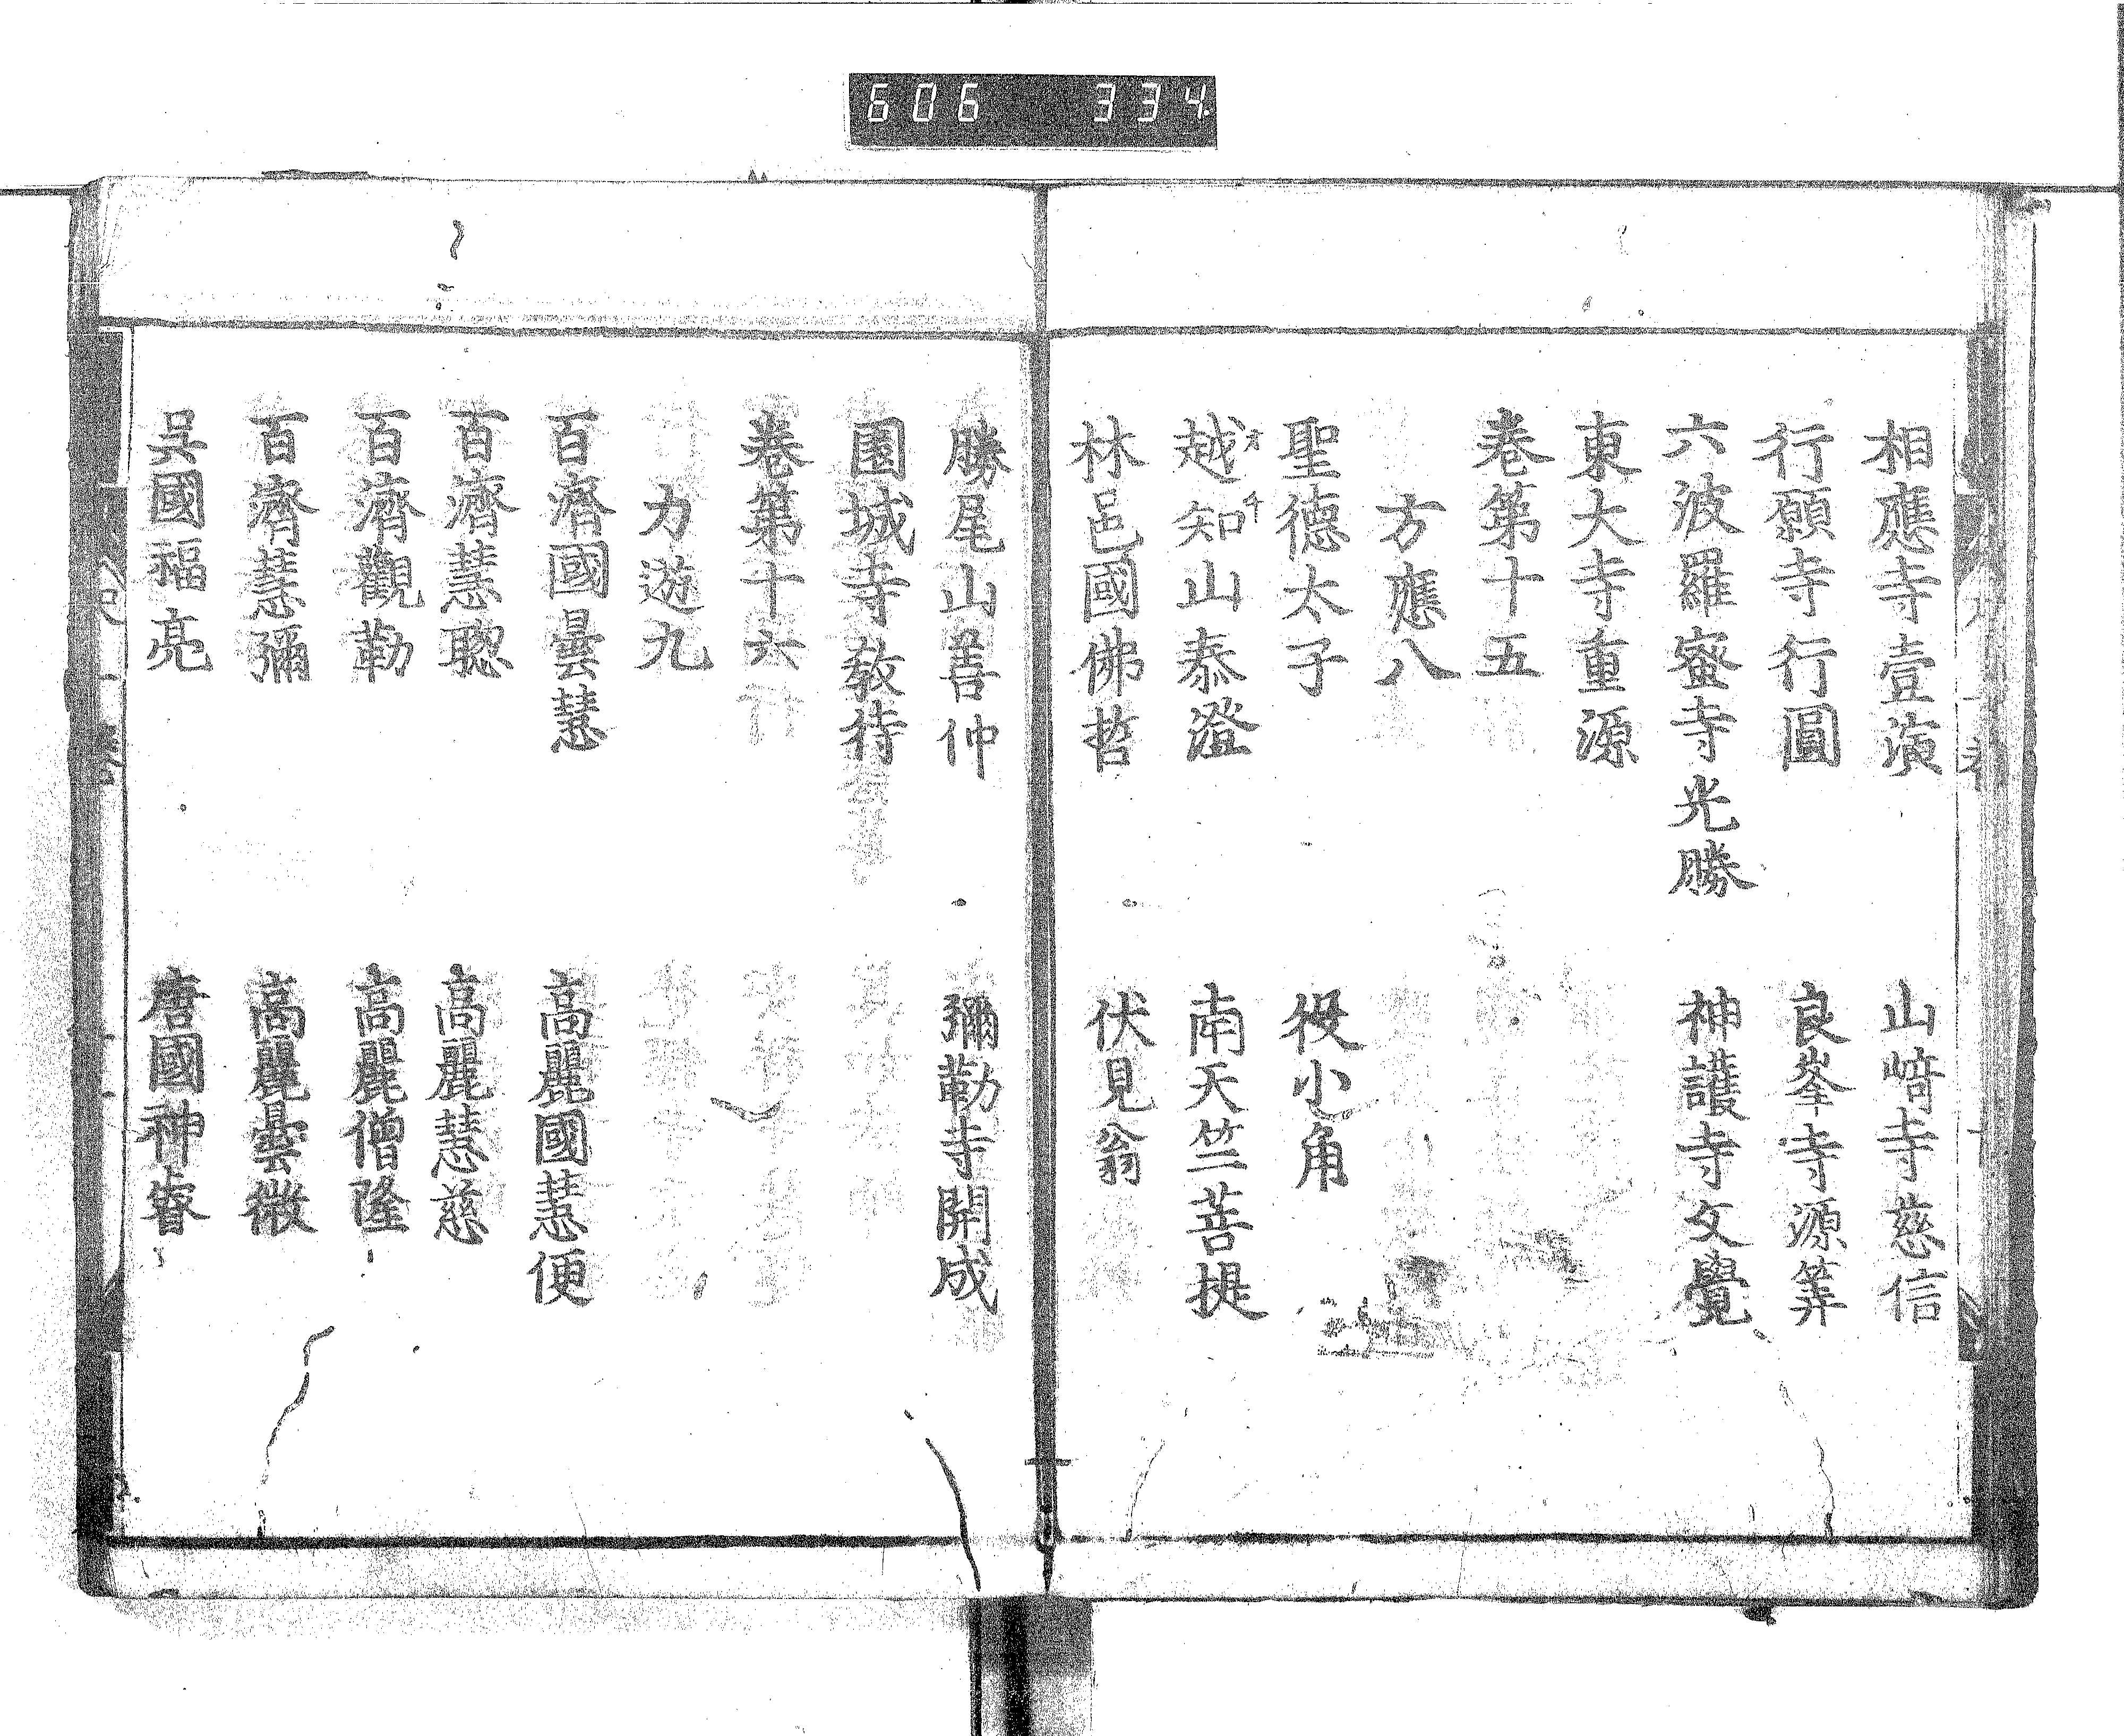 606 334
相應寺壹演 山﨑寺慈信
行願寺行圓 良峯寺源筭
六波羅蜜寺光勝 神護寺文覺
東大寺重源
卷第十五
方應八
聖德太子 役小角
越知山泰澄 南天竺菩提
オチ
林邑國佛哲 伏見翁
勝尾山善仲 彌勒寺開成
園城寺敎待
卷第十六
力遊九
百濟國曇慧 高麗國慧便
百濟慧聦 高麗慧慈
百濟觀勒 高麗僧隆
百濟慧彌 高麗曇徵
吳國福亮 唐國神睿